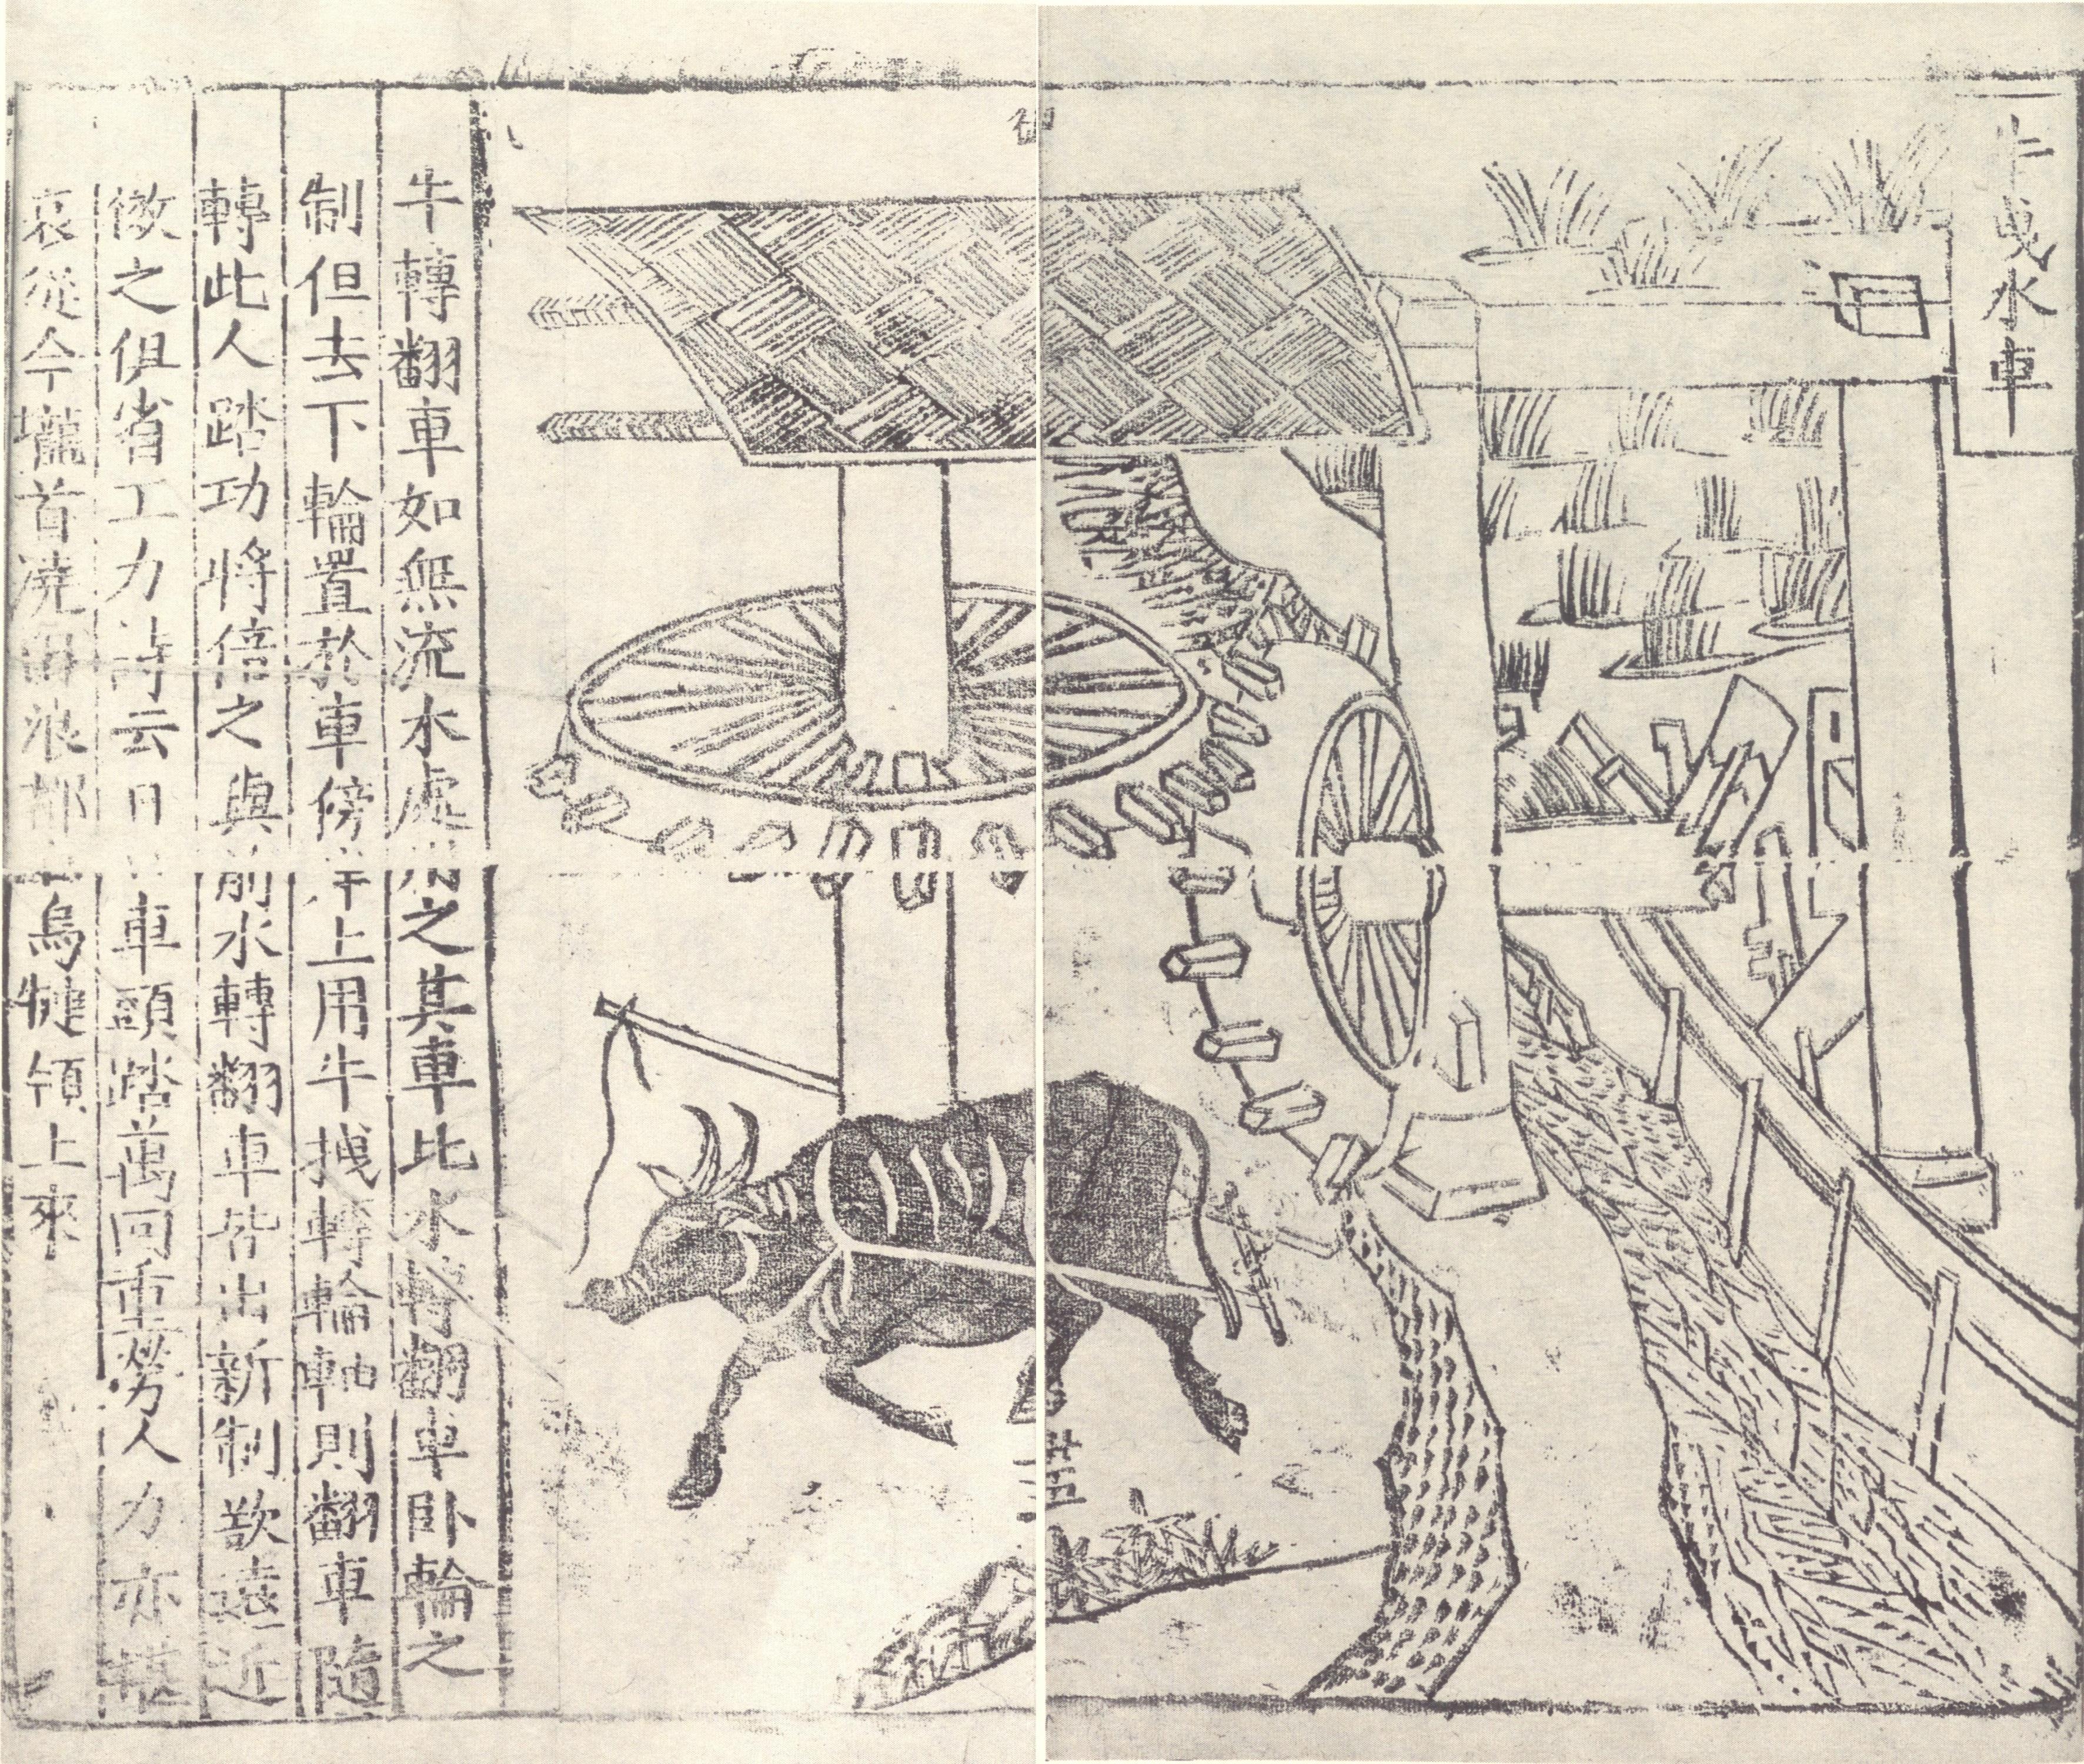 牛曳水車
牛轉翻車如無流水處用之其車比水轉翻車臥輪之
制但去下輪置於車傍岸上用牛拽轉輪軸則翻車隨
轉此人踏功將倍之與前水轉翻車皆出新制欲遠近
傚之俱省工力詩云日日車頭踏萬回重勞人力亦
哀從今壠首澆田浪都 烏犍領上來